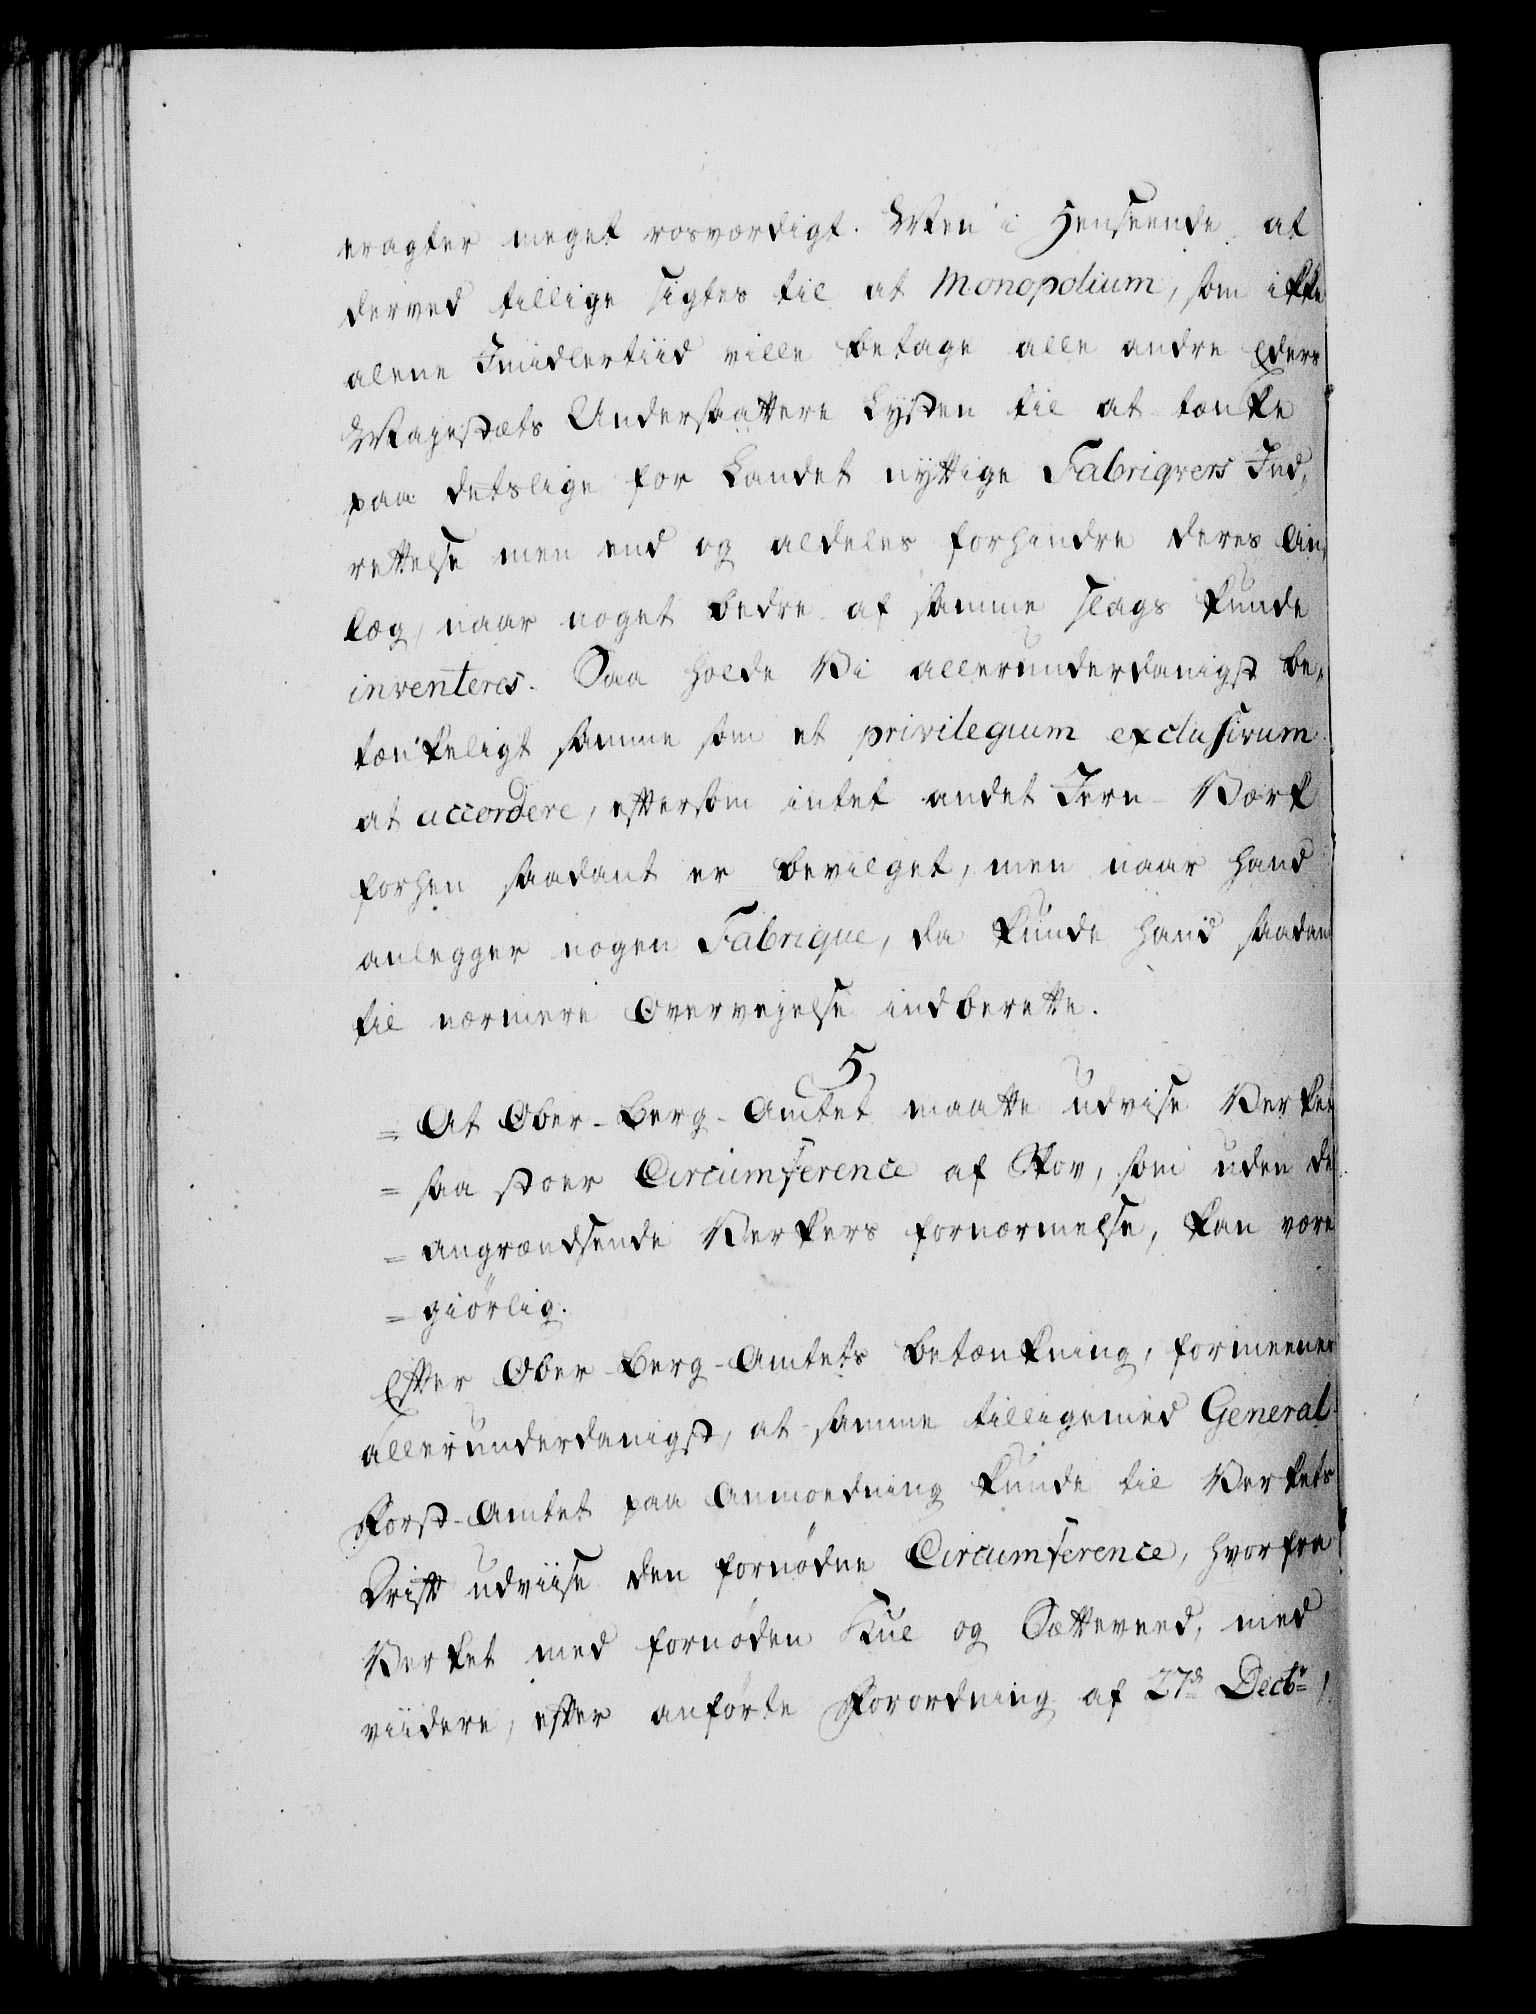 eragter meget rosværdigt. Men i Henseende at
derved tillige sigtes til at Monopolium, som ikke
alene Imidlertiid ville betage alle andre Eders
Mayestæts Undersaattere Lysten til at tænke
paa detslige for Landet nyttige Fabriqvers Ind,
rettelse men end og aldeles forhindre deres An,
læg, naar noget bedre af samme slags kunde
inventeres. Saa holde Vi allerunderdanigst be,
tænkeligt samme som et privilegium exclusivum
at accordere, eftersom intet andet Jern-Værk
forhen saadant er bevilget, men naar hand
anlegger nogen Fabrique, da kunde hand saadan
til nærmere Overvejelse indberette.
5,
= At Ober-Berg-Amtet maatte udvise Verket
= saa stoer Circumference af Skov, som uden de
= angrændsende Verkers fornærmelse, kan være
= giørlig.
Efter Ober-Berg-Amtets betænkning, formeener
allerunderdanigst, at samme tilligemed General
Forst-Amtet paa Anmoedning kunde til Verkets
Drift udviise den fornødne Circumference, hvorfra
Verket med fornøden Kul og Sætteveed, med
viidere, efter anførte Forordning af 27de Decbr